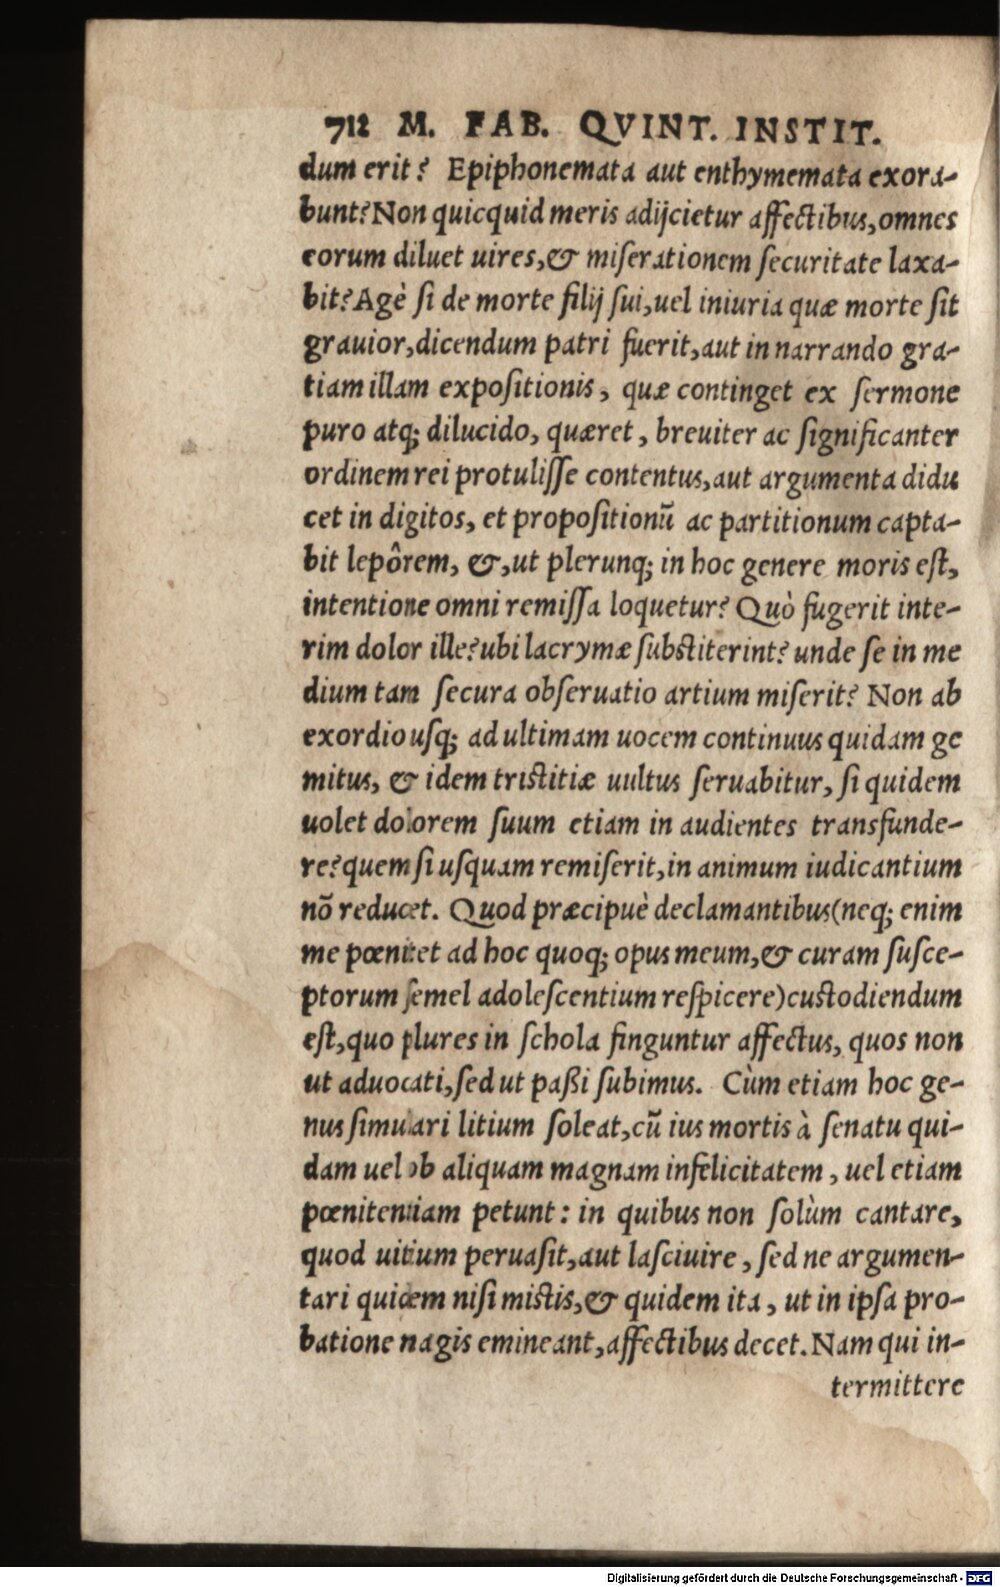 712 M. FAB. QVINT. INSTIT.
dum erit? Epiphonemata aut enthymemata exora-
bunt? Non quicquid meris adijcietur affectibus, omnes
eorum diluet uires, & miserationem securitate laxa-
bit? Agè si de morte filij sui, uel iniuria quæ morte sit
grauior, dicendum patri fuerit, aut in narrando gra-
tiam illam expositionis, quæ continget ex sermone
puro atq; dilucido, quæret, breuiter ac significanter
ordinem rei protulisse contentus, aut argumenta didu
cet in digitos, et propositionũ ac partitionum capta-
bit lepôrem, &, ut plerunq; in hoc genere moris est,
intentione omni remissa loquetur? Quò fugerit inte-
rim dolor ille? ubi lacrymæ substiterint? unde se in me
dium tam secura obseruatio artium miserit? Non ab
exordio usq; ad ultimam uocem continuus quidam ge
mitus, & idem tristitiæ uultus seruabitur, si quidem
uolet dolorem suum etiam in audientes transfunde-
re? quem si usquam remiserit, in animum iudicantium
nõ reducet. Quod præcipuè declamantibus (neq; enim
me pœnitet ad hoc quoq; opus meum, & curam susce-
ptorum semel adolescentium respicere) custodiendum
est, quo plures in schola finguntur affectus, quos non
ut aduocati, sed ut paßi subimus. Cùm etiam hoc ge-
nus simulari litium soleat, cũ ius mortis à senatu qui-
dam uel ob aliquam magnam infelicitatem, uel etiam
pœnitentiam petunt: in quibus non solùm cantare,
quod uitium peruasit, aut lasciuire, sed ne argumen-
tari quidem nisi mistis, & quidem ita, ut in ipsa pro-
batione magis emineant, affectibus decet. Nam qui in-
termittere
Digitalisierung gefördert durch die Deutsche Forschungsgemeinschaft - DFG